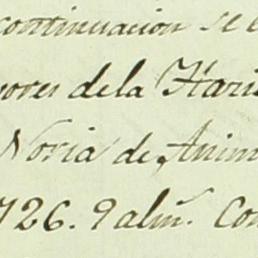 continuacion se e
ores de la Hari
Noria de Anim
726. 9 alm.s Con